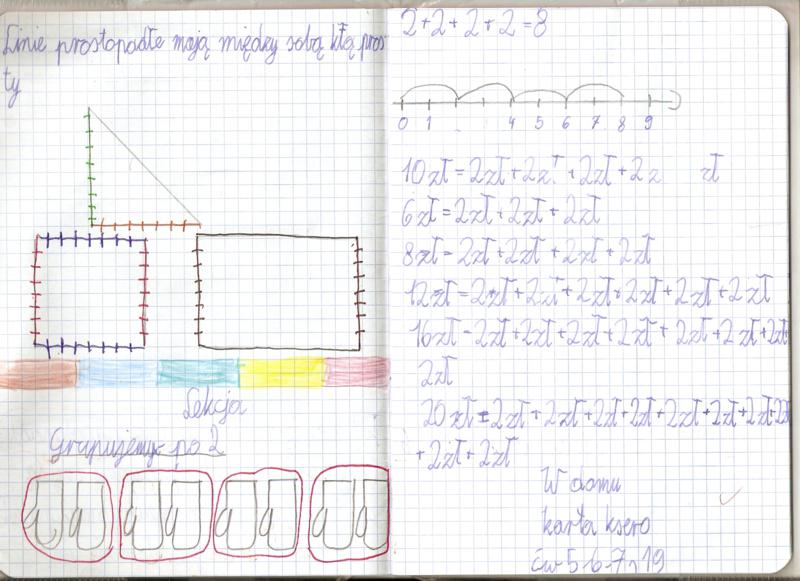 Linie prostopadłe mają między sobą kłą pros-
ty
Lekcja
Grupujemy po 2
2+2+2+2=8
0 1 4 5 6 7 8 9
10zł=2zł+2zł+2zł+2z zł
6zł=2zł+2zł+2zł
8zł=2zł+2zł+2zł+2zł
12zł=2zł+2zł+2zł+2zł+2zł+2zł
16zł-2zł+2zł+2zł+2zł+2zł+2zł+2zł+
2zł
20zł=2zł+2zł+2zł+2zł+2zł+2zł+2zł+2zł
+2zł+2zł
W domu
karta ksero
ćw 5 6 7 19